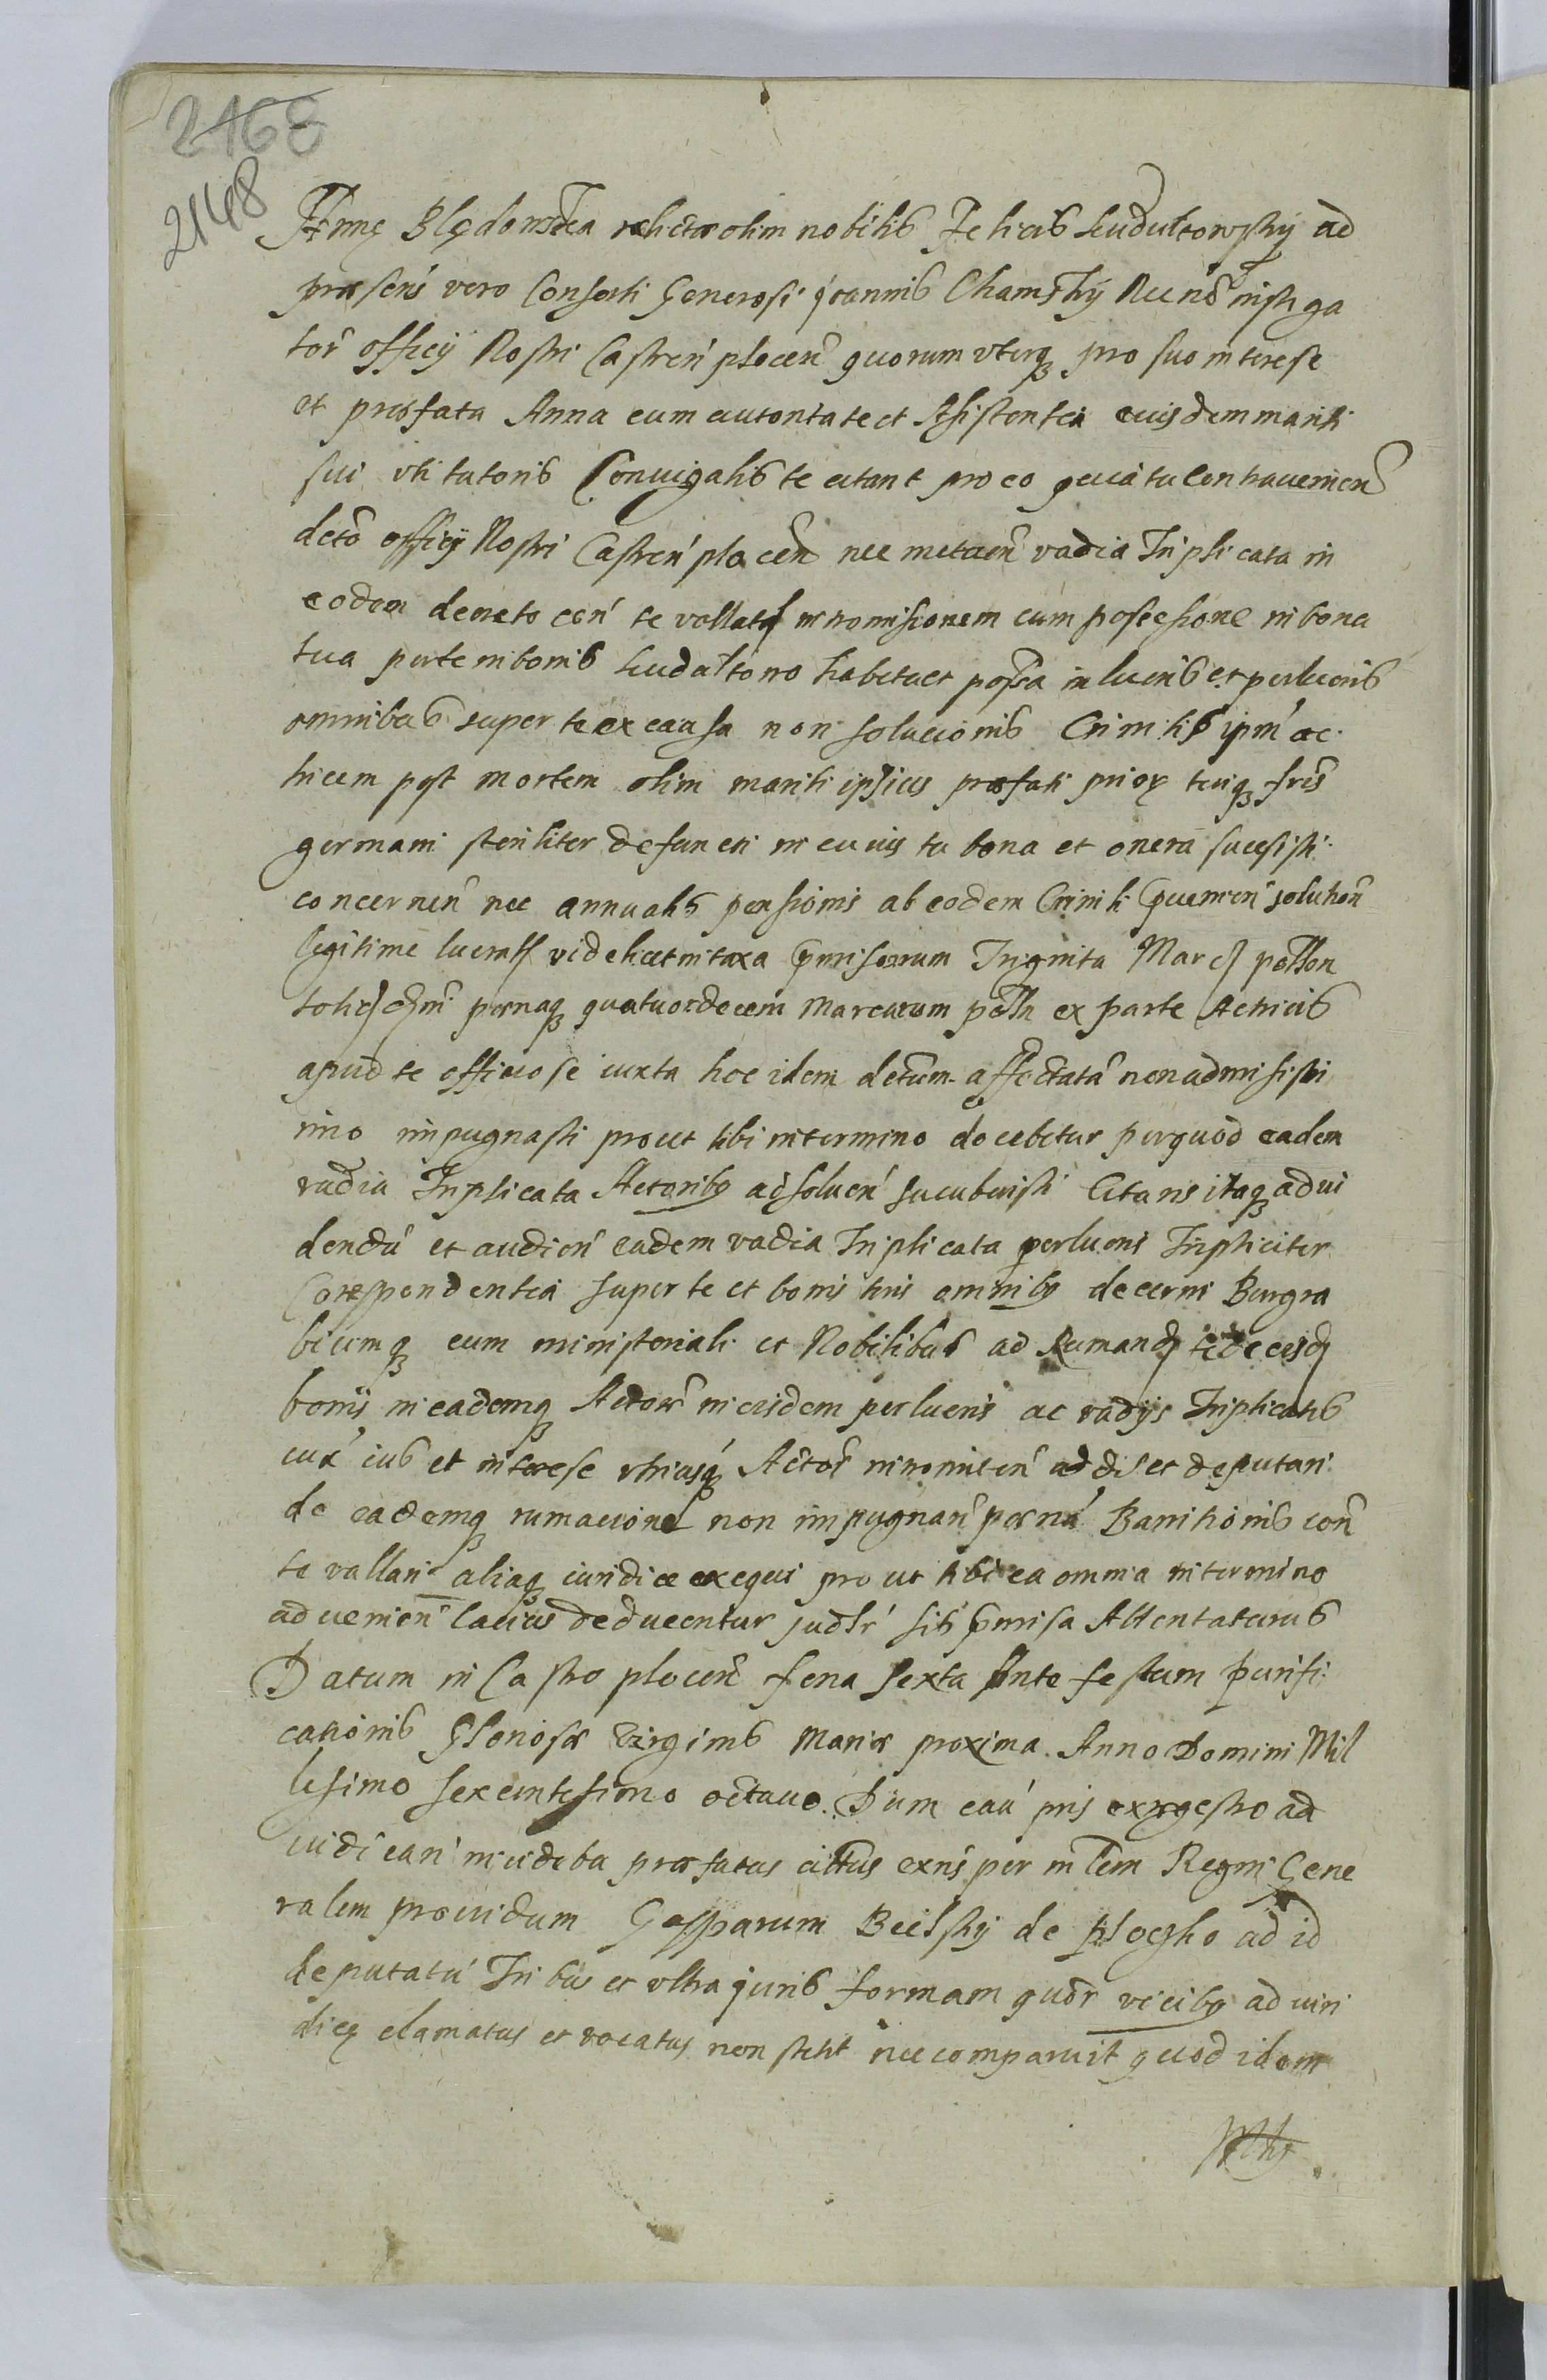 2168
2148
Annę Blędowska relictæ olim nobilis Felicis Sudultowsky ad
præsens vero Consorti Generosi joannis Chamsky Necnō instiga
tor̃ officÿ Nostri Castreñ plocen̄ quorum vterq3 pro suo interese
et præfata Anna cum autoritate et Asistentia eiusdem mariti
sui vti tutoris Conuigalis te citant pro eo quia tu Contrauenien̄
decto officÿ Nostri Castreñ plocen̄ nec metuen̄ vadia Triplicata in
eodem decreto con̄ te vallata intromisionem cum posesione in bona
tua parte in bonis Sudultowo habita et posea in lucris et perlucris
omnibus super te ex causa non solucionis Crinilis ipm̄ ac
hicem post mortem olim mariti ipsius præfati prioris tuiq3 fris
germani steriliter defuncti in cuius tu bona et onera sucesisti
concernen̄ nec annualis pensionis ab eodem Crinili puenien̄ soluthon̄
legitime lucratis videlicet in taxa pmisorum Triginta Marcis polon
pœnaq3 quatuordecem Marcarum poln ex parte Actricis
apud te officiose iuxta hoc idem decrtum affectatā non admisisti
imo impugnasti prout tibi in termino docebitur per quod eadem
vadia Triplicata Actoribus ad soluen̄ sucubuisti Citaris itaq3 ad vi
dendū et audien̄ eadem vadia Triplicata perlucris Tripliciter
Corespondentia super te et bonis tuis omnibus decerni Burgra
biumq3 cum ministeriali et Nobilibus ad Rumand te de eisd
bonis in eademq3 Actores in eisdem perlucris ac vadÿs Triplicatis
iux̄ ius et interese vtriusq3 Actor̃ intromiten̄ addi et deputari
de eademq3 rumacione non impugnan̄ pœnā Banitionis con̄
te vallari aliaq3 iuridice exequi pro ut tibi ea omnia in termino
ad venien̄ lacius deducentur judlr̃ sis pmisa Attentaturus
Datum in Castro plocen̄ feria sexta Ante festum purifi
cationis Gloriosæ Virginis Mariæ proxima Anno Domini Mil
lesimo sexcentesimo octauo. Dum cauā pns ex rgestro ad
iudicañ incideba præfatus cittus exñs per mlem Regni Gene
ralem prouidum Gasparum Bielsky de ploczko ad id
deputatū Tribus et vltra juris formam quor̃ vicibus ad viri
dicę clamatus et vocatus non stetit nec comparuit quod idem